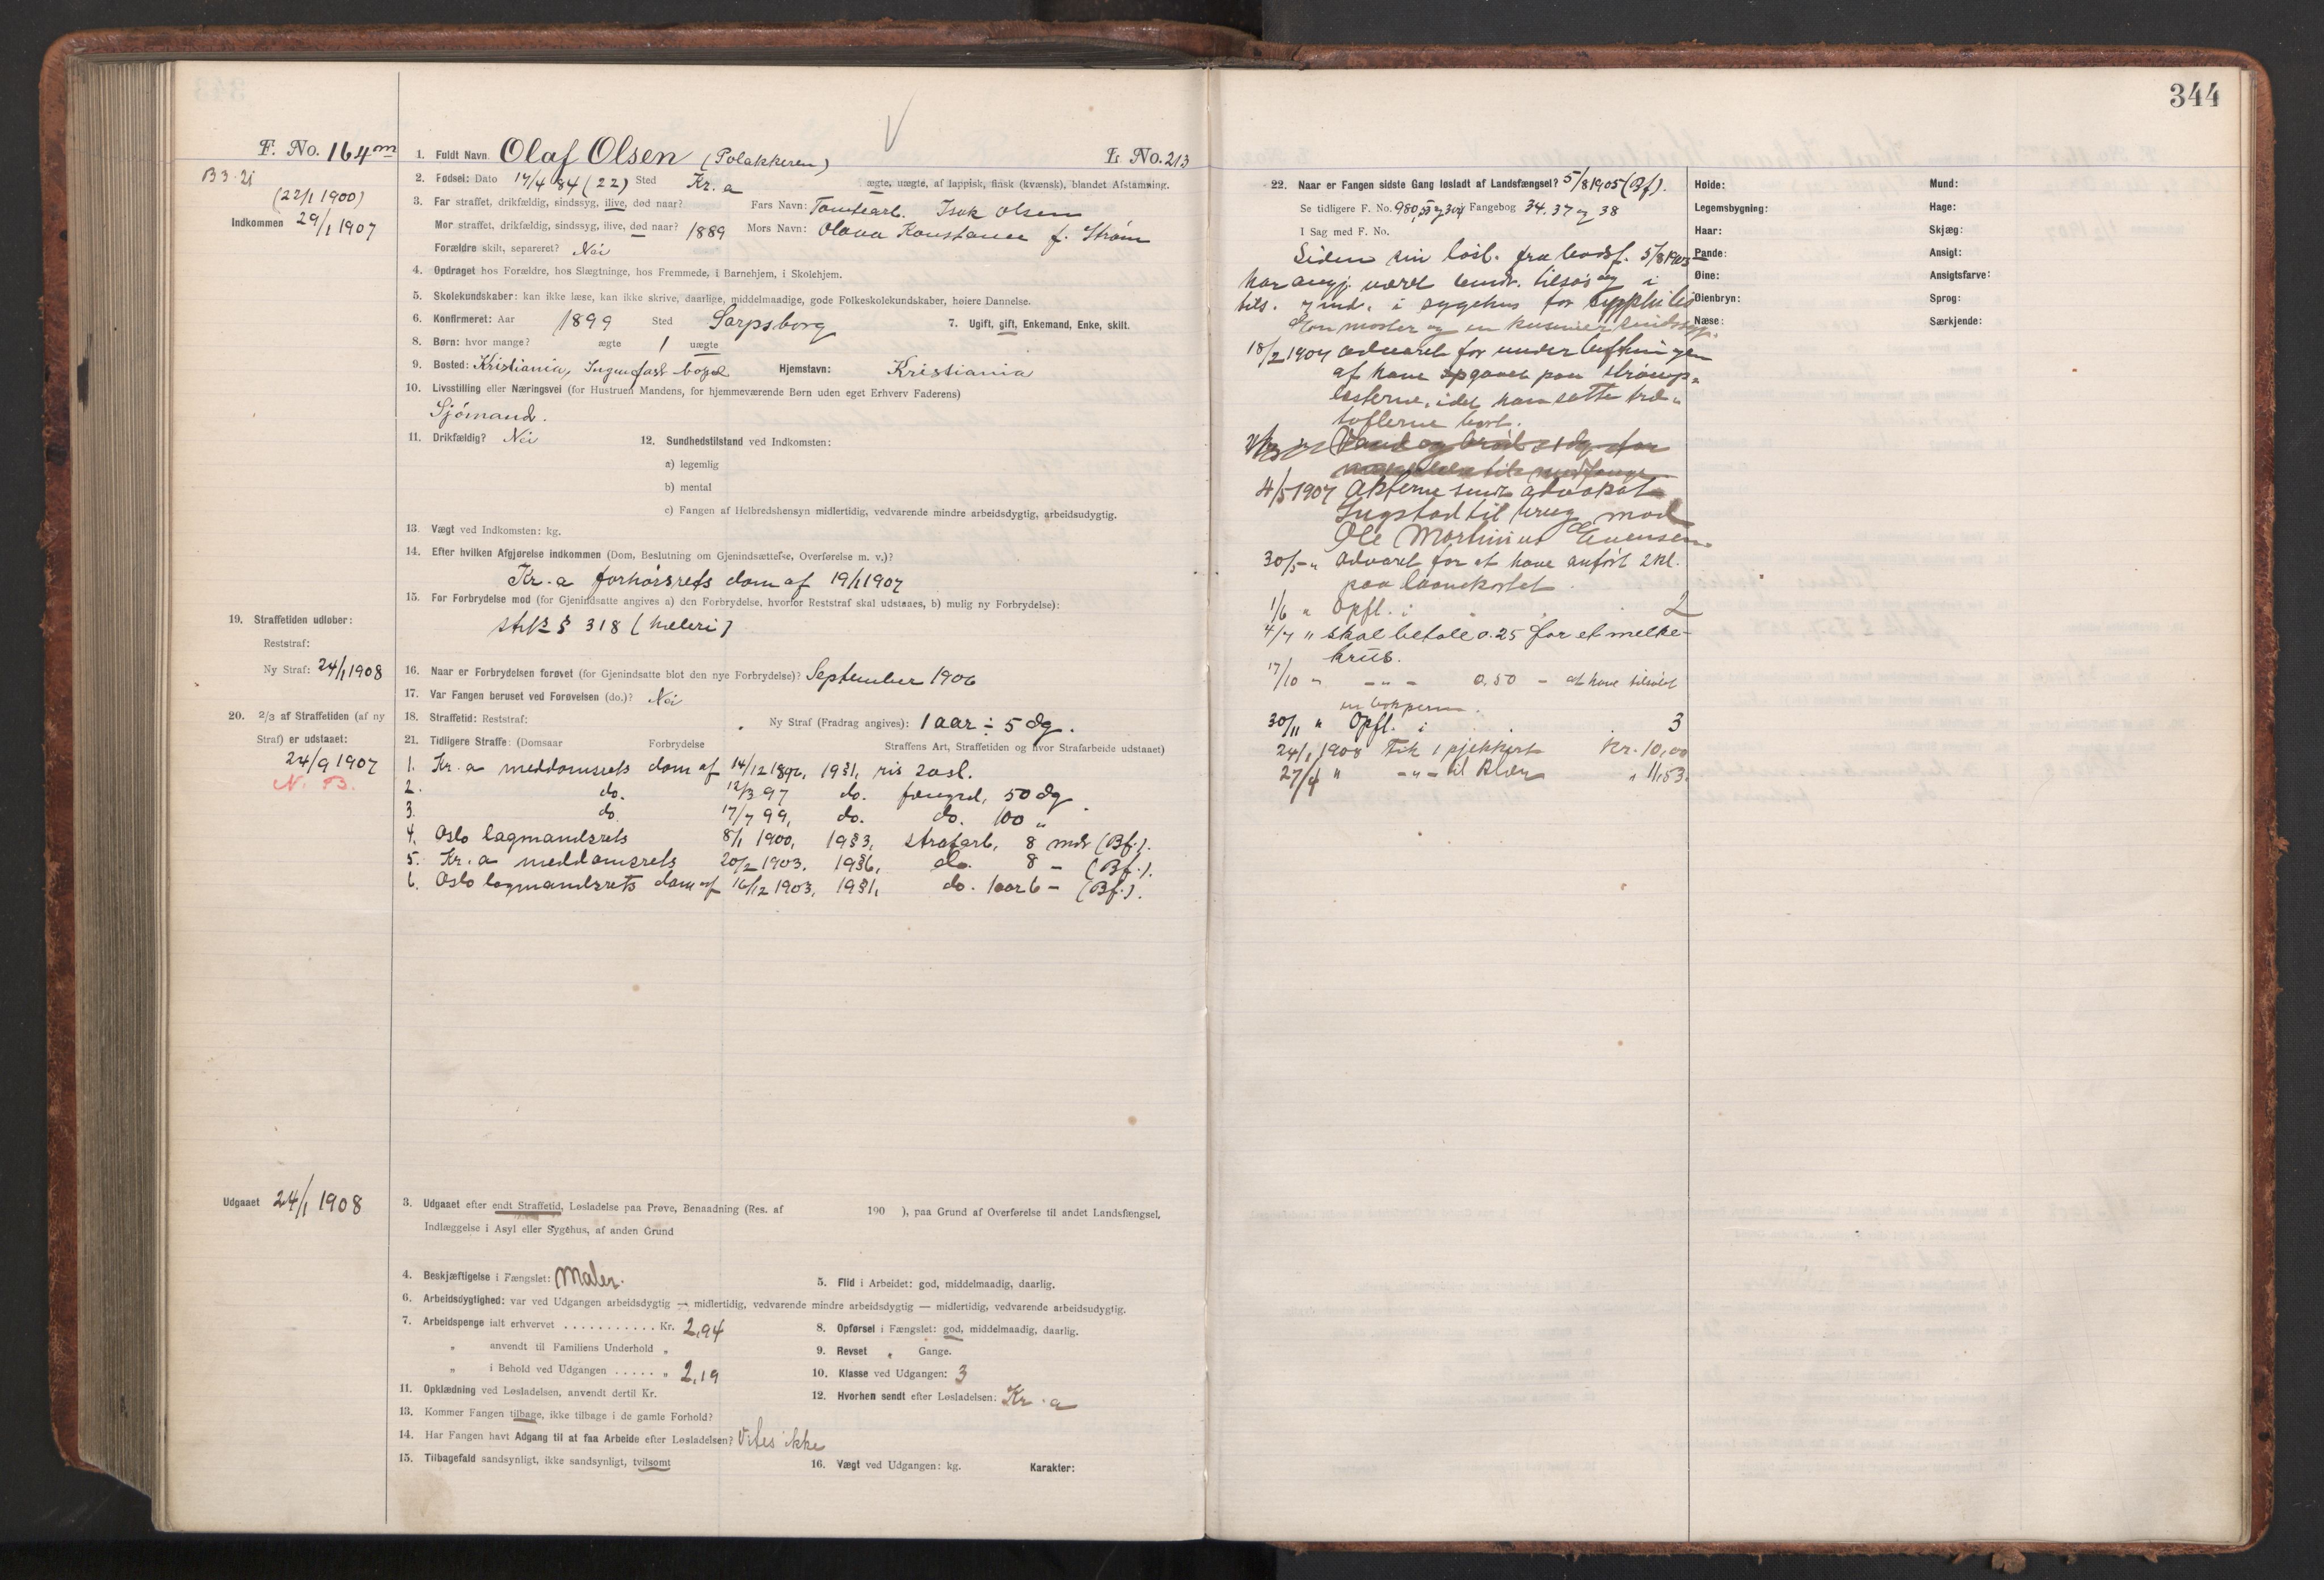 344
F. No. 164 m
1. Fuldt Navn Olaf Olsen (Polakkeren) L. No. 213
B3. 21
(22/1 1900)
Indkommen 29/1 1907
2. Fødsel: Dato 17/4 84 (22) Sted Kr.a ægte, uægte, af lappisk, finsk (kvænsk), blandet Afstamning.
3. Far straffet, drikfældig, sindssyg, ilive, død naar? Fars Navn: Tomtearb. Isak Olsen
Mor straffet, drikfældig, sindssyg, ilive, død naar? 1889 Mors Navn: Olava Konstance f. Strøm
Forældre skilt, separeret? Nei
4. Opdraget hos Forældre, hos Slægtninge, hos Fremmede, i Barnehjem, i Skolehjem.
5. Skolekundskaber: kan ikke læse, kan ikke skrive, daarlige, middelmaadige, gode Folkeskolekundskaber, høiere Dannelse.
6. Konfirmeret: Aar 1899 Sted Sarpsborg 7. Ugift, gift, Enkemand, Enke, skilt.
8. Børn: hvor mange? ægte 1 uægte
9. Bosted: Kristiania, Ingen fast bopæl Hjemstavn: Kristiania
10. Livsstilling eller Næringsvei (for Hustruen Mandens, for hjemmeværende Børn uden eget Erhverv Faderens)
Sjømand.
11. Drikfældig? Nei 12. Sundhedstilstand ved Indkomsten:
a) legemlig
b) mental
c) Fangen af Helbredshensyn midlertidig, vedvarende mindre arbeidsdygtig, arbeidsudygtig.
13. Vægt ved Indkomsten: kg.
14. Efter hvilken Afgjørelse indkommen (Dom, Beslutning om Gjenindsættelse, Overførelse m. v.)?
Kr.a forhørsrets dom af 19/1 1907
15. For Forbrydelse mod (for Gjenindsatte angives a) den Forbrydelse, hvorfor Reststraf skal udstaaes, b) mulig ny Forbrydelse):
strl § 318 (hæleri)
19. Straffetiden udløber:
Reststraf:
Ny Straf: 24/1 1908
16. Naar er Forbrydelsen forøvet (for Gjenindsatte blot den nye Forbrydelse)? September 1906
17. Var Fangen beruset ved Forøvelsen (do.)? Nei
20. 2/3 af Straffetiden (af ny Straf) er udstaaet:
24/9 1907
N. B.
18. Straffetid: Reststraf: Ny Straf (Fradrag angives): 1 aar ÷ 5 dg.
21. Tidligere Straffe: (Domsaar Forbrydelse Straffens Art, Straffetiden og hvor Strafarbeide udstaaet)
1. Kr.a meddomsrets dom af 14/12 1896, 19 § 1, ris 20 sl.
2. do. 12/3 97 do. fængsel, 50 dg
3. do. 17/7 99, do. do. 100 "
4. Oslo lagmandsrets 8/1 1900, 19 § 3, strafarb, 8 mdr (Bf.).
5. Kr.a meddomsrets 20/2 1903. 19 § 6, do. 8 - (Bf.).
6. Oslo lagmandsrets dom af 16/12 1903, 19 § 1, do. 1 aar 6 - (Bf.).
Udgaaet 24/1 1908
3. Udgaaet efter endt Straffetid, Løsladelse paa Prøve, Benaadning (Res. af 190 ), paa Grund af Overførelse til andet Landsfængsel,
Indlæggelse i Asyl eller Sygehus, af anden Grund
4. Beskjæftigelse i Fængslet: Maler. 5. Flid i Arbeidet: god, middelmaadig, daarlig.
6. Arbeidsdygtighed: var ved Udgangen arbeidsdygtig — midlertidig, vedvarende mindre arbeidsdygtig — midlertidig, vedvarende arbeidsudygtig.
7. Arbeidspenge ialt erhvervet Kr. 2,94 8. Opførsel i Fængslet: god, middelmaadig, daarlig.
" anvendt til Familiens Underhold " 9. Revset Gange.
" i Behold ved Udgangen " 2,19 10. Klasse ved Udgangen: 3
11. Opklædning ved Løsladelsen, anvendt dertil Kr. 12. Hvorhen sendt efter Løsladelsen: Kr.a
13. Kommer Fangen tilbage, ikke tilbage i de gamle Forhold?
14. Har Fangen havt Adgang til at faa Arbeide efter Løsladelsen? Vites ikke
15. Tilbagefald sandsynligt, ikke sandsynligt, tvilsomt 16. Vægt ved Udgangen: kg. Karakter:
22. Naar er Fangen sidste Gang løsladt af Landsfængsel? 5/8 1905 (Bf).
Se tidligere F. No. 980, 55 og 304 Fangebog 34. 37 og 38
I Sag med F. No.
Siden sin løsl. fra landsf. 5/8 1905
har angj. været tilsjøs og i
tils. 7 md. i sygehus for syphilis
moster og en kusine sindssyg.
18/2 1907 advaret for under luftningen
af have opgavet paa strømpe-
læsterne, idet han satte træ-
tøflerne bort.
Vand og brød
4/5 1907 Akterne sendt advokat
Ingstad til brug mod
Ole Martinius Evensen
30/5 " Advaret for at have anført 2 kl.
paa laanekortet.
1/6 " Opfl. i 2
4/7 " skal betale 0.25 for et melke-
krus.
17/10 " - " - 0.50 - at have tilsølet
en bokperm.
30/11 " Opfl. i 3
24/1 1908 Fik 1 pjekkert Kr. 10,00
27/4 " - " - til klær " 11,53.
Høide: Mund:
Legemsbygning: Hage:
Haar: Skjæg:
Pande: Ansigt:
Øine: Ansigtsfarve:
Øienbryn: Sprog:
Næse: Særkjende: